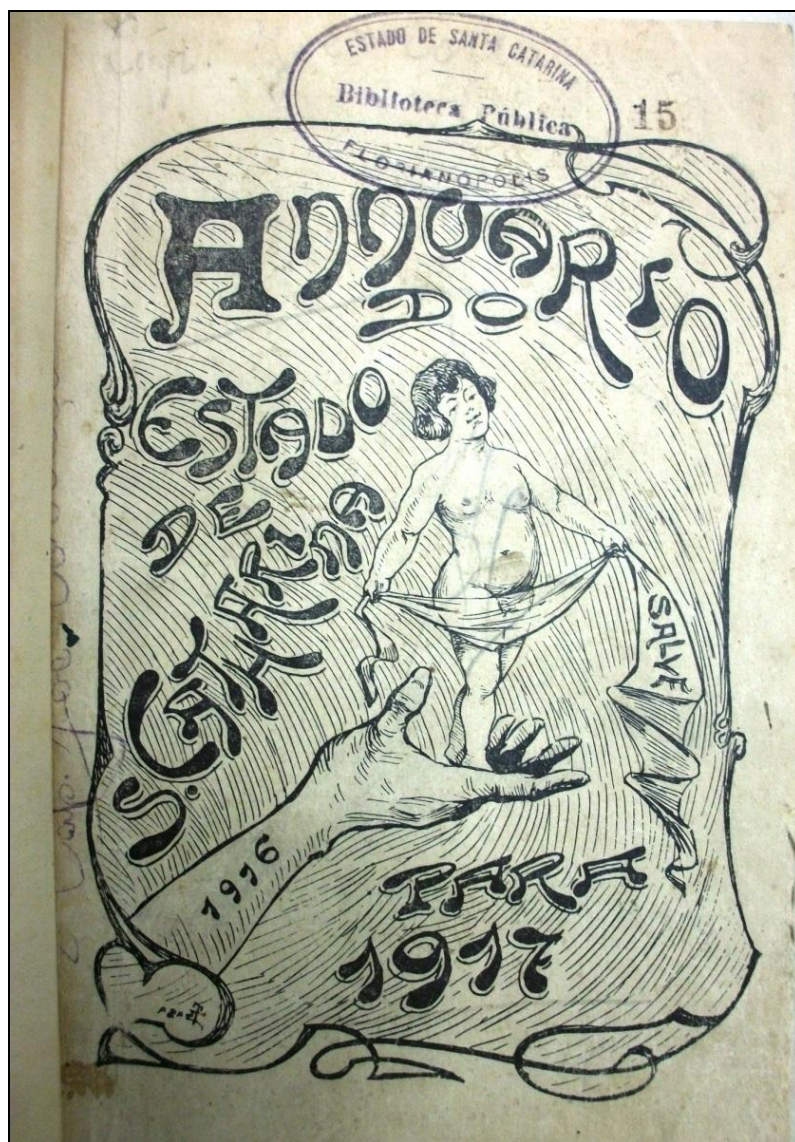 ESTADO DE SANTA CATARINA
Bibliotera Pública
FLORIANÓPOLIS
15
ANNUARIO
DO
ESTADO
DE
S. CATHARINA
SALVE
1916
PARA
1917